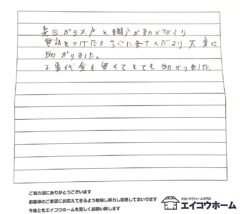 毎日ガラス戸と網戸が動かなく
電話をかけたらすぐに来て下さり大変
助かりました。
工事代金も安くてとても助かりました。
ご協力誠にありがとうございます
お客様のご要望にお応えできるよう勉強し努力し前進してまいります
今後ともエイコウホームを宜しくお願い致します
エイコウホーム